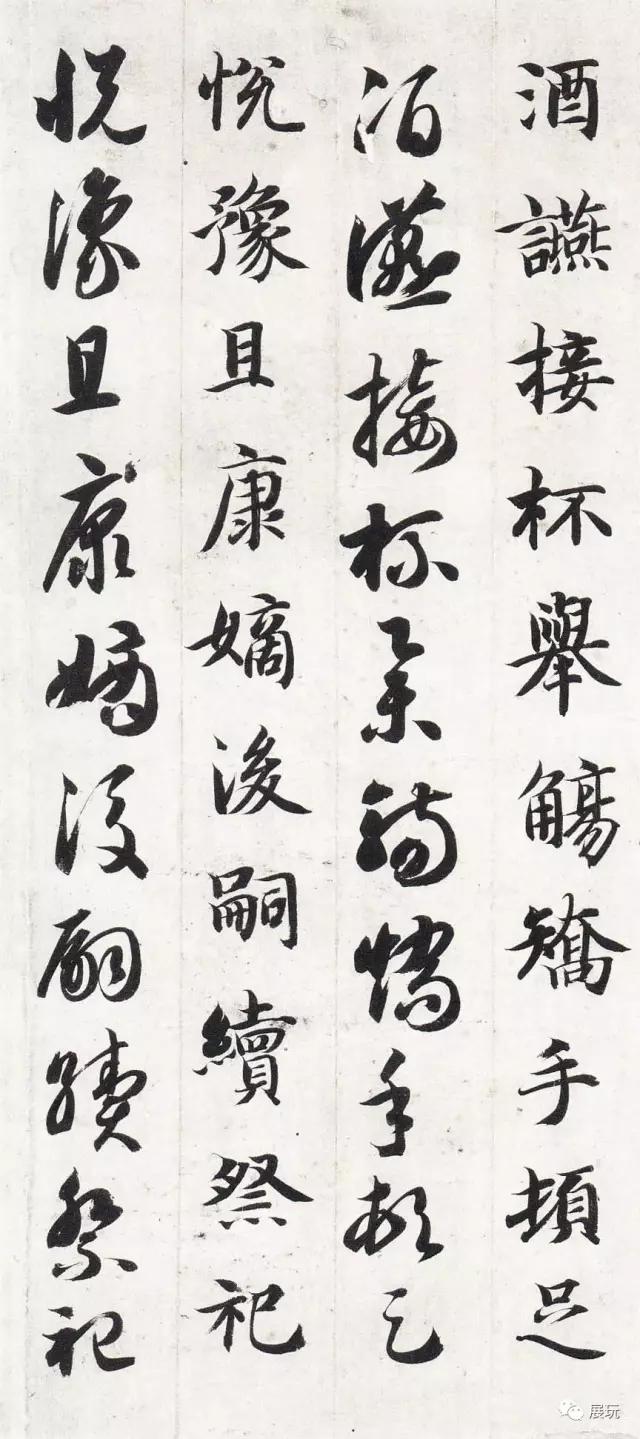 酒讌接杯舉觴矯手頓足
酒讌接杯舉觴矯手頓足
悅豫且康嫡後嗣續祭祀
悅豫且康嫡後嗣續祭祀
展玩